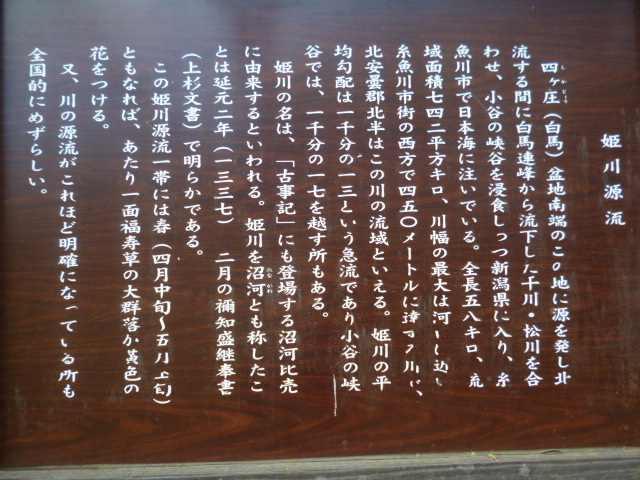 姫川源流
四ヶ庄(白馬)盆地南端のこの地に源を発し北
流する間に白馬連峰から流下した千川・松川を合
わせ、小谷の峡谷を浸食しつつ新潟県に入り、糸
魚川市で日本海に注いでいる。全長五八キロ、流
域面積七四二平方キロ、川幅の最大は河口
糸魚川市街の西方で四五〇メートルに達
北安曇郡北半はこの川の流域といえる。姫川の平
均勾配は一千分の一三という急流であり小谷の峡
谷では、一千分の一七を越す所もある。
姫川の名は、「古事記」にも登場する沼河比売
に由来するといわれる。姫川を沼河とも称したこ
とは延元二年(一三三七) 二月の禰知盛継奉書
(上杉文書)で明らかである。
この姫川源流一帯には春(四月中旬~五月上旬)
ともなれば、あたり一面福寿草の大群落が黄色の
花をつける。
又、川の源流がこれほど明確になっている所も
全国的にめずらしい。